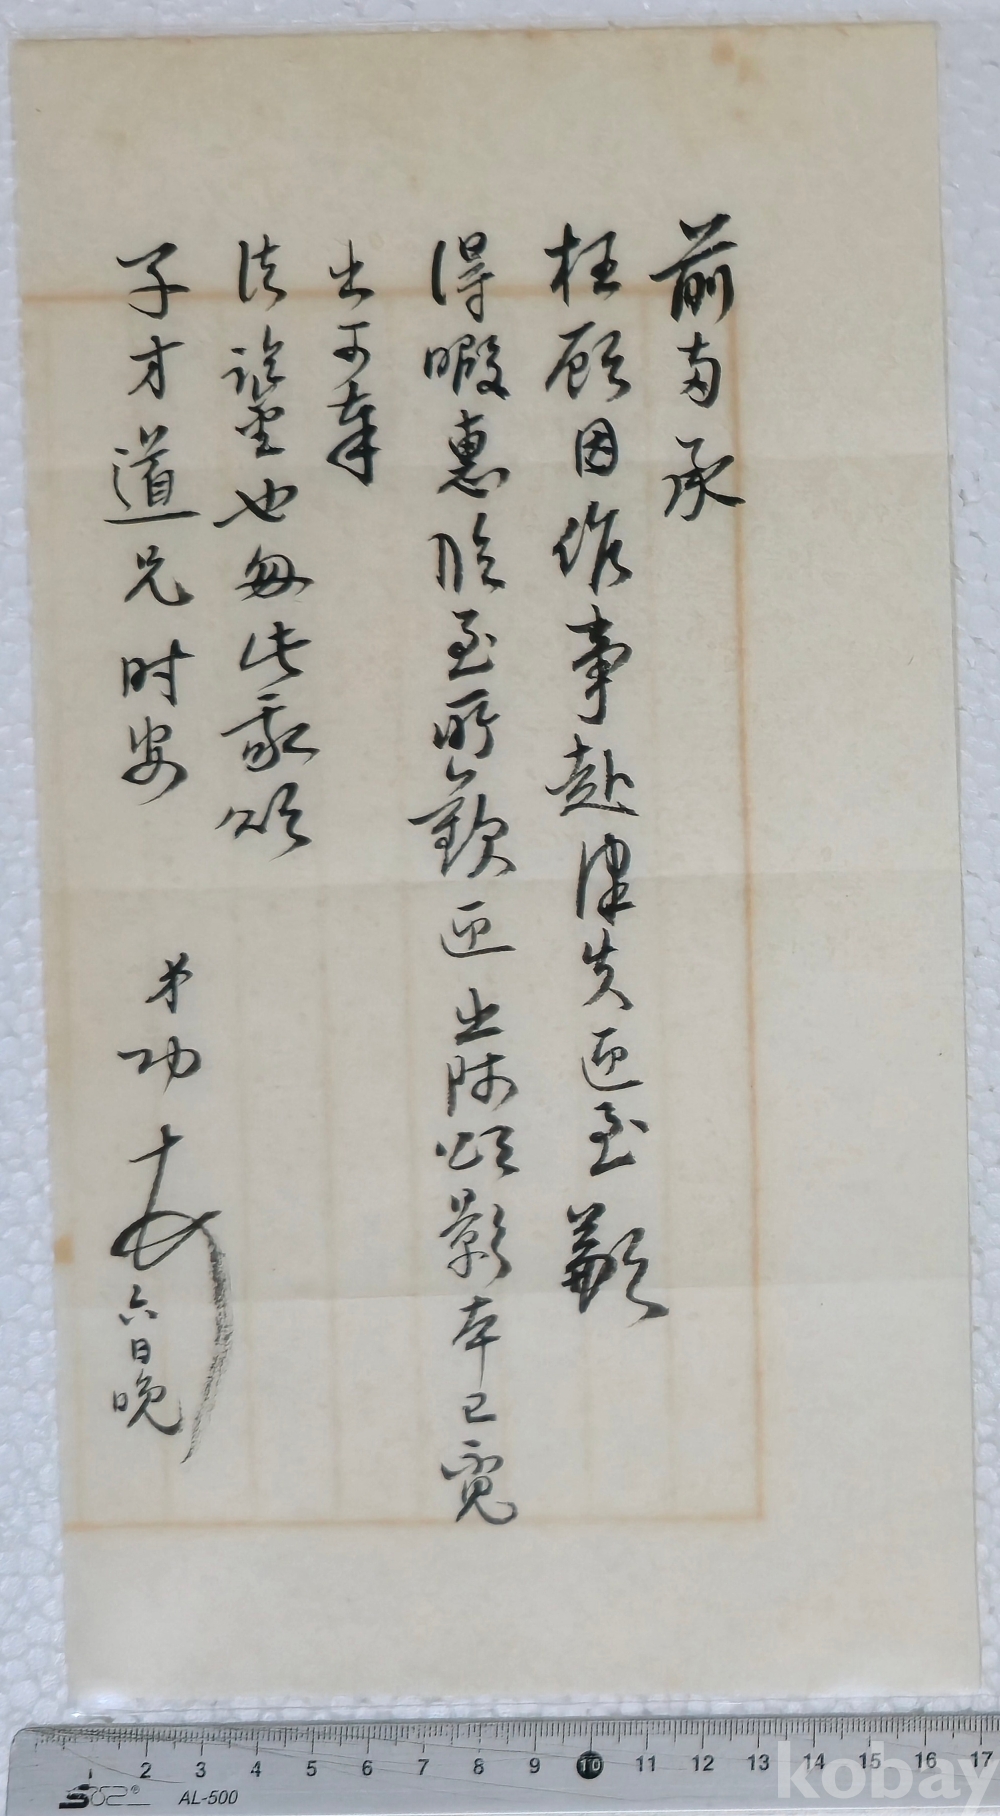 前函承
枉顾因作事赴津失迎至歉
得暇惠临至所欢迎出师颂影本已觅
出可奉
法鉴也匆此敬颂
子才道兄时安
弟功
六日晚
1 2 3 4 5 6 7 8 9 10 11 12 13 14 15 16 17
AL-500
kobay